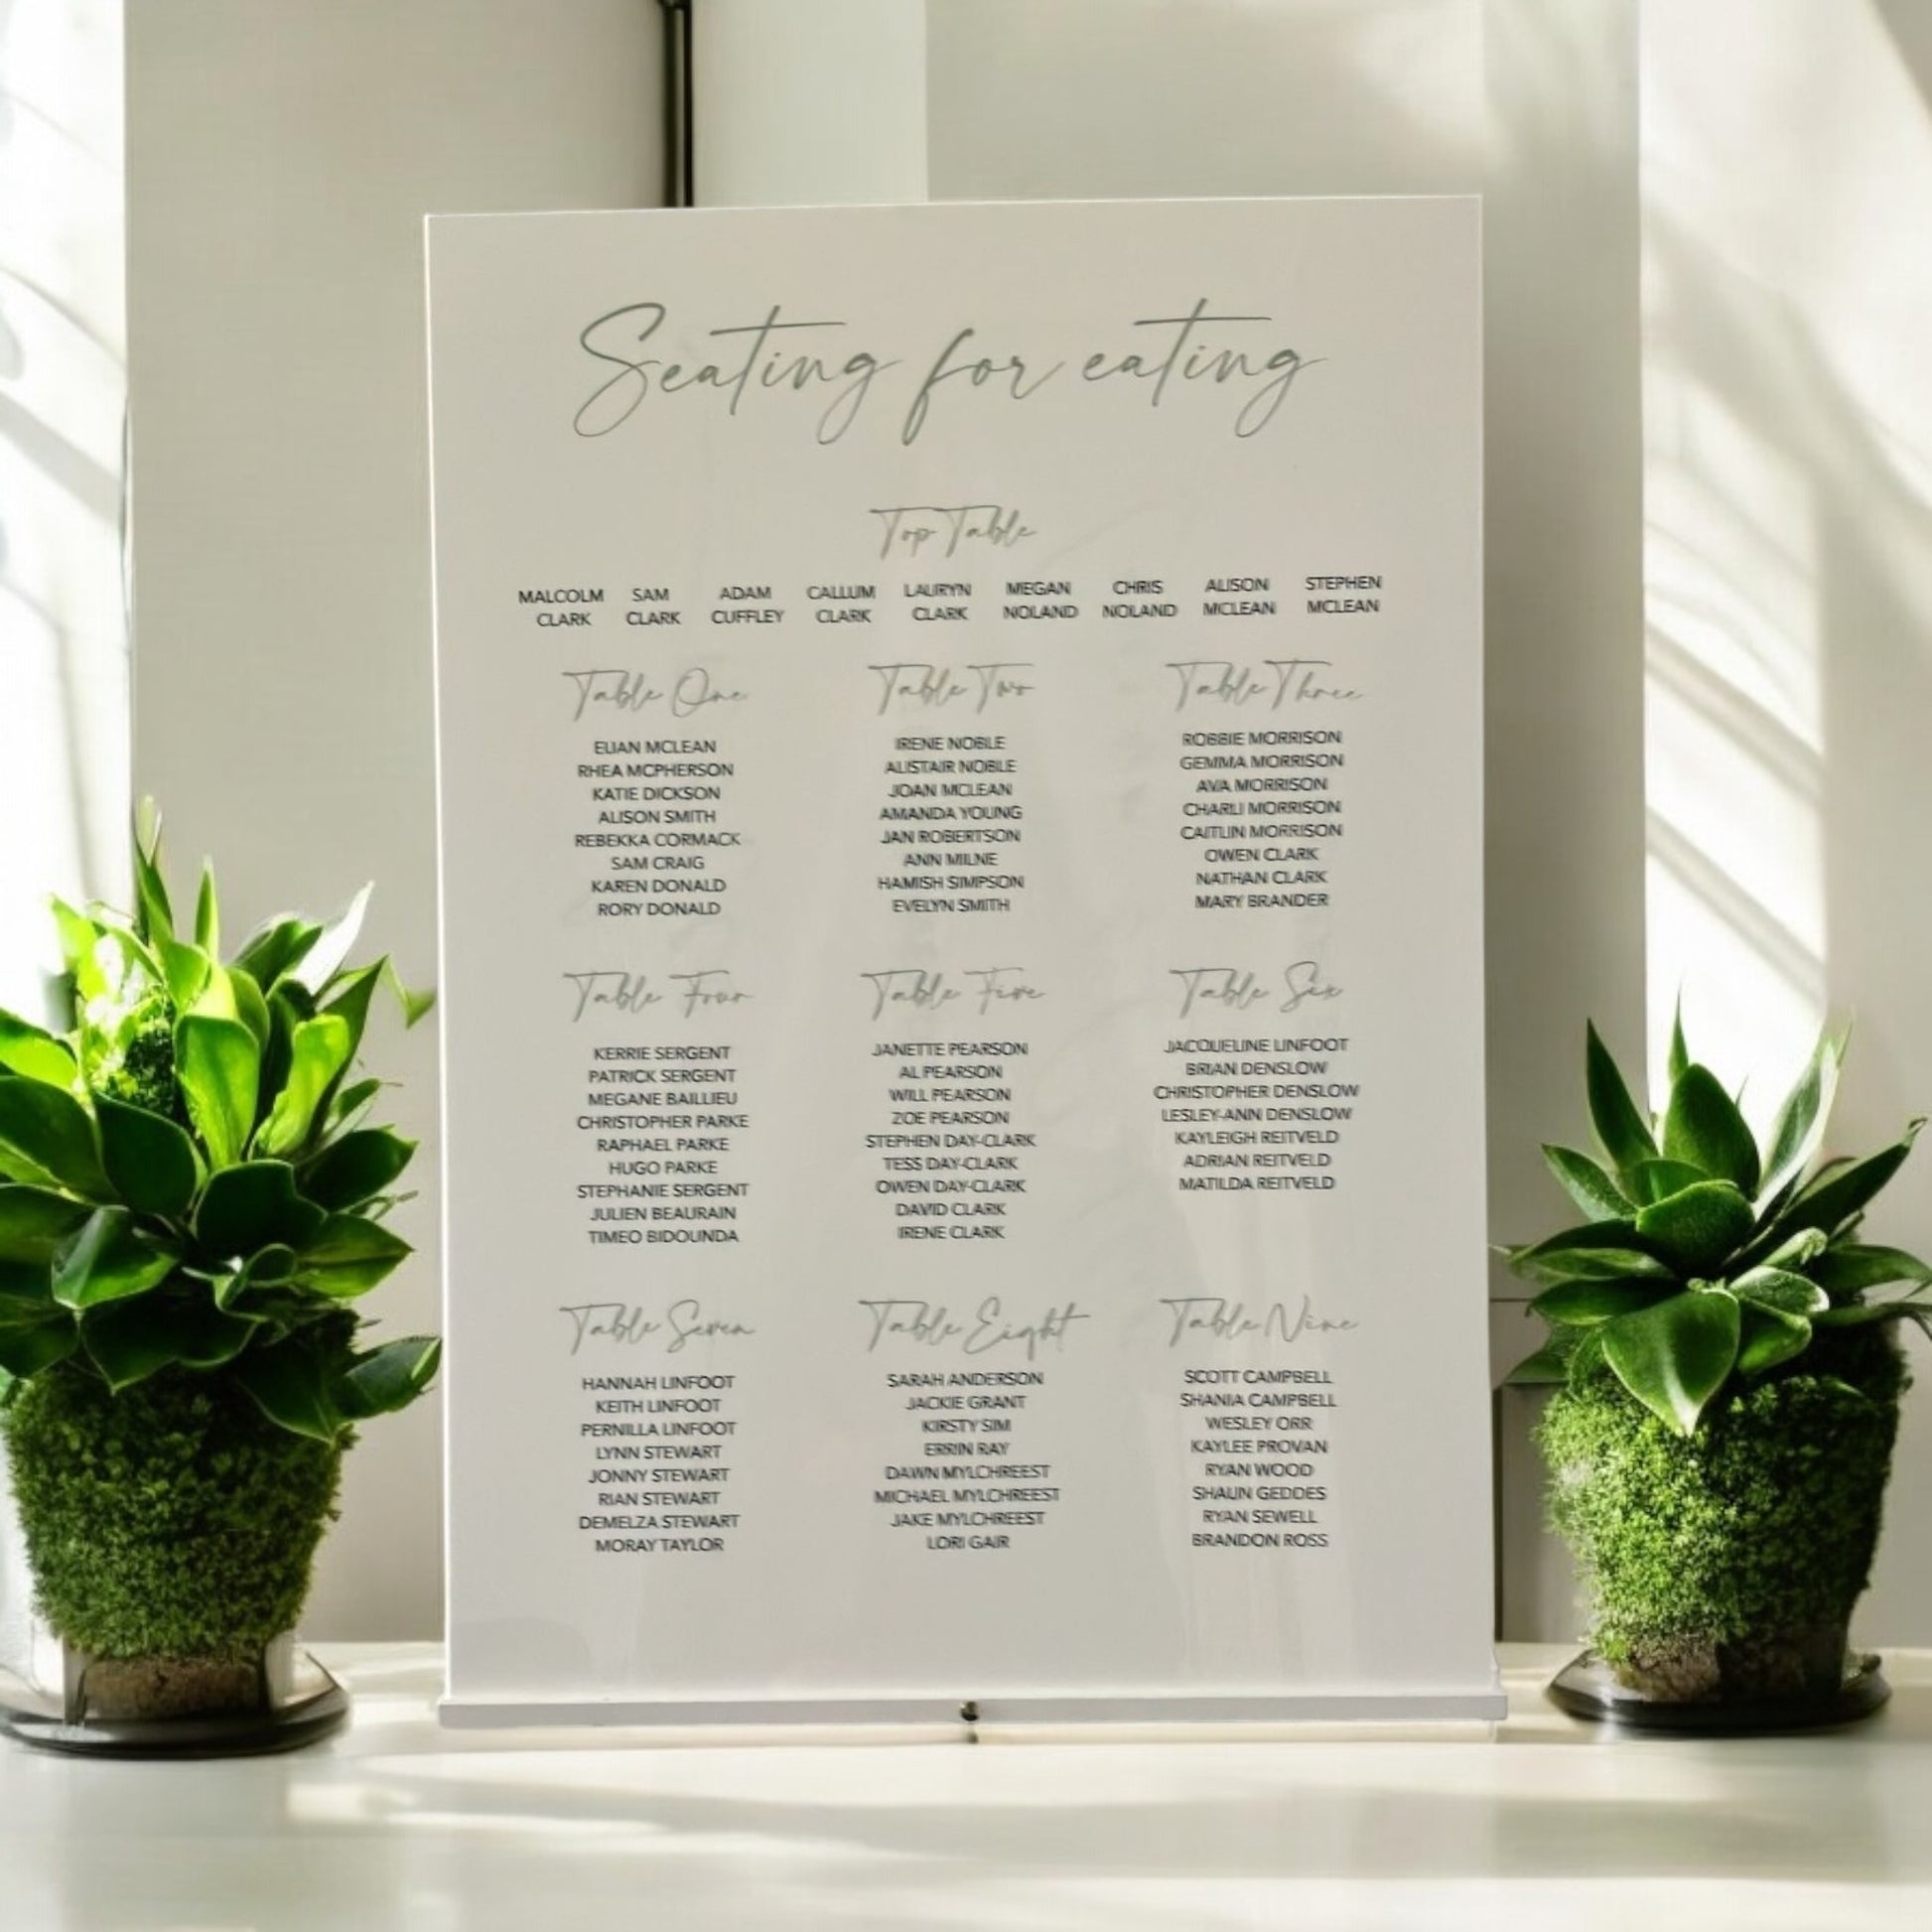 Seating for eating
Top Table
MALCOLM CLARK
SAM CLARK
ADAM CUFFLEY
CALLUM CLARK
LAURYN CLARK
MEGAN NOLAND
CHRIS NOLAND
ALISON MCLEAN
STEPHEN MCLEAN
Table One
ELIAN MCLEAN
RHEA MCPHERSON
KATIE DICKSON
ALISON SMITH
REBEKKA CORMACK
SAM CRAIG
KAREN DONALD
RORY DONALD
Table Two
IRENE NOBLE
ALISTAIR NOBLE
JOAN MCLEAN
AMANDA YOUNG
JAN ROBERTSON
ANN MILNE
HAMISH SIMPSON
EVELYN SMITH
Table Three
ROBBIE MORRISON
GEMMA MORRISON
AVA MORRISON
CHARLI MORRISON
CAITLIN MORRISON
OWEN CLARK
NATHAN CLARK
MARY BRANDER
Table Four
KERRIE SERGENT
PATRICK SERGENT
MEGANE BAILLIEU
CHRISTOPHER PARKE
RAPHAEL PARKE
HUGO PARKE
STEPHANIE SERGENT
JULIEN BEAURAIN
TIMEO BIDOUNDA
Table Five
JANETTE PEARSON
AL PEARSON
WILL PEARSON
ZOE PEARSON
STEPHEN DAY-CLARK
TESS DAY-CLARK
OWEN DAY-CLARK
DAVID CLARK
IRENE CLARK
Table Six
JACQUELINE LINFOOT
BRIAN DENSLOW
CHRISTOPHER DENSLOW
LESLEY-ANN DENSLOW
KAYLEIGH REITVELD
ADRIAN REITVELD
MATILDA REITVELD
Table Seven
HANNAH LINFOOT
KEITH LINFOOT
PERNILLA LINFOOT
LYNN STEWART
JONNY STEWART
RIAN STEWART
DEMELZA STEWART
MORAY TAYLOR
Table Eight
SARAH ANDERSON
JACKIE GRANT
KIRSTY SIM
ERRIN RAY
DAWN MYLCHREEST
MICHAEL MYLCHREEST
JAKE MYLCHREEST
LORI GAIR
Table Nine
SCOTT CAMPBELL
SHANIA CAMPBELL
WESLEY ORR
KAYLEE PROVAN
RYAN WOOD
SHAUN GEDDES
RYAN SEWELL
BRANDON ROSS